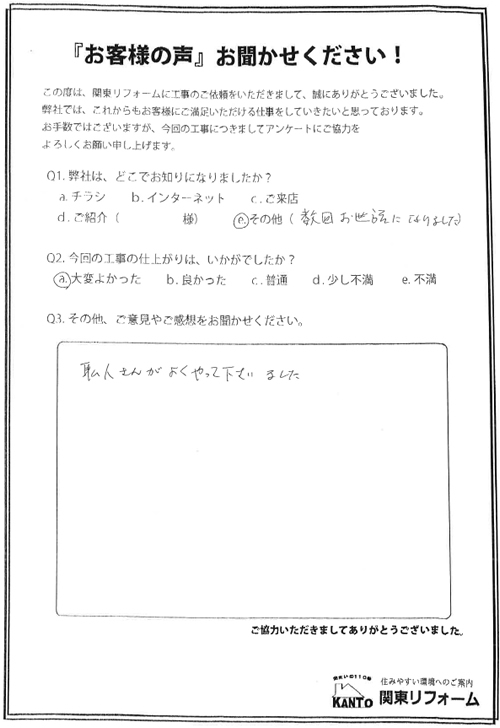 『お客様の声』お聞かせください！
この度は、関東リフォームに工事のご依頼をいただきまして、誠にありがとうございました。
弊社では、これからもお客様にご満足いただける仕事をしていきたいと思っております。
お手数ではございますが、今回の工事につきましてアンケートにご協力を
よろしくお願い申し上げます。
Q1. 弊社は、どこでお知りになりましたか？
a. チラシ b. インターネット c. ご来店
d. ご紹介（ 様） e. その他（数回お世話になりました）
Q2. 今回の工事の仕上がりは、いかがでしたか？
a. 大変よかった b. 良かった c. 普通 d. 少し不満 e. 不満
Q3. その他、ご意見やご感想をお聞かせください。
職人さんがよくやって下さいました
ご協力いただきましてありがとうございました。
住みやすい環境へのご案内
KANTO 関東リフォーム